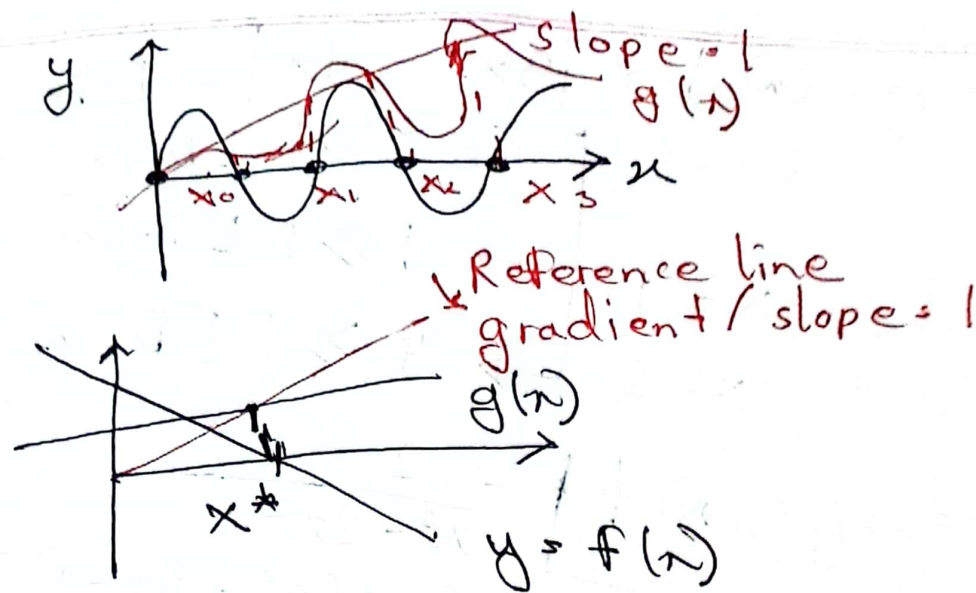 y.
slope = 1
g(x)
x
x₀ x₁ x₂ x₃
Reference line
gradient / slope = 1
g(x)
x*
y = f(x)